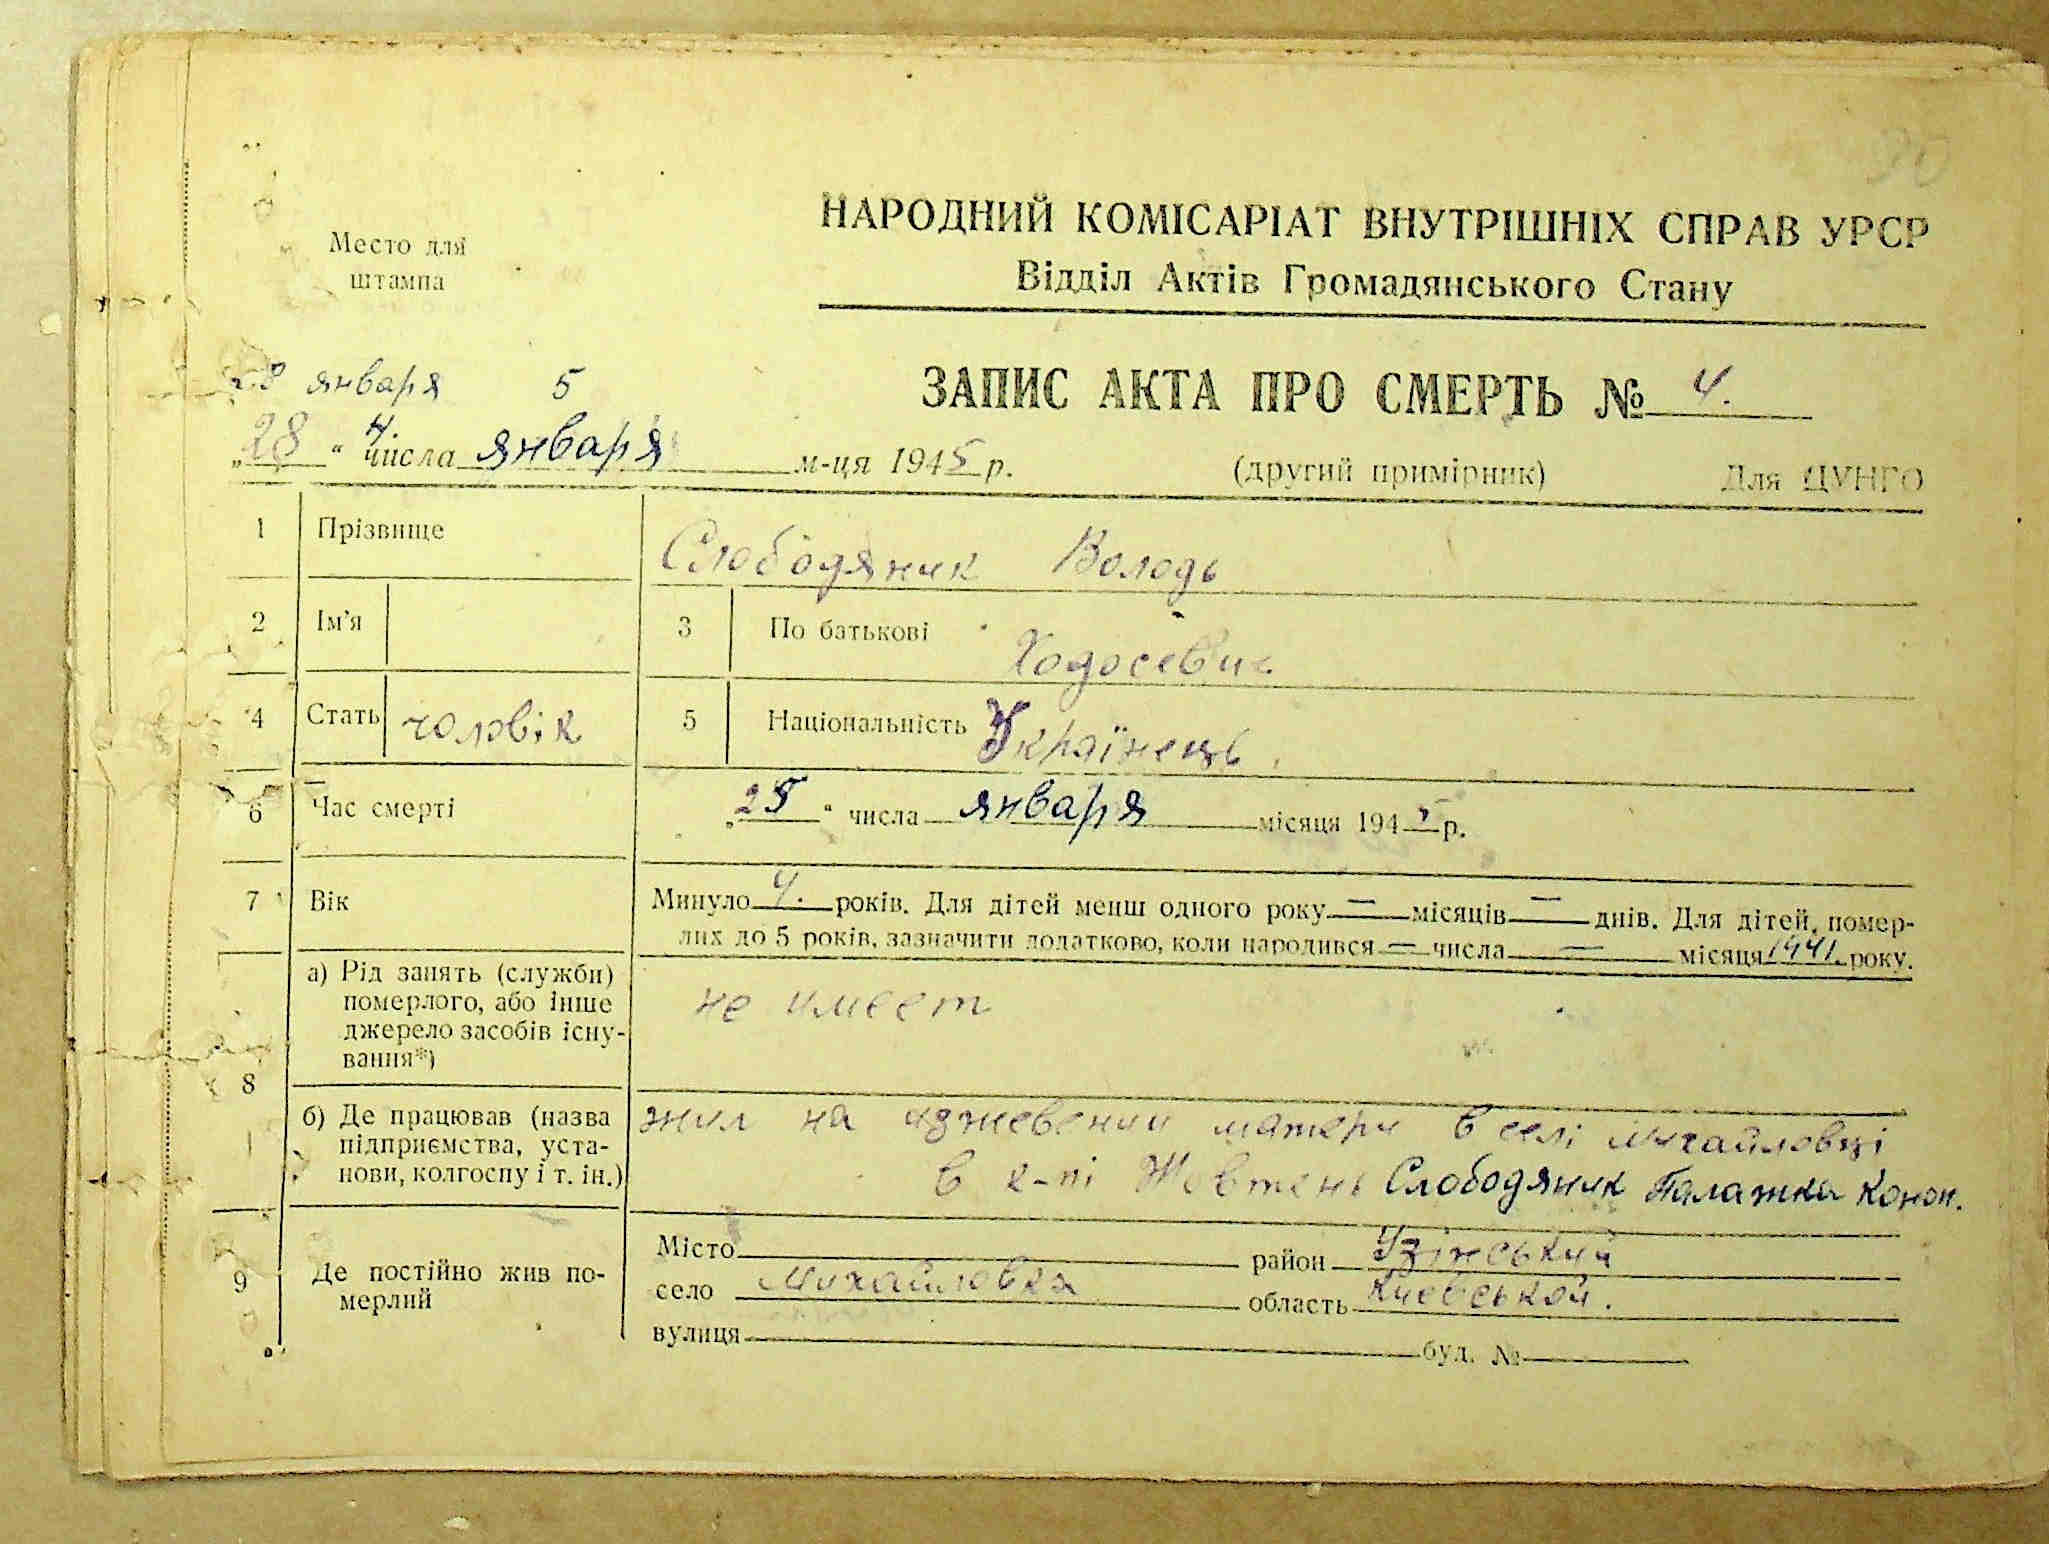 НАРОДНИЙ КОМІСАРІАТ ВНУТРІШНІХ СПРАВ УРСР
Відділ Актів Громадянського Стану
Место для
штампа
28 января 5
ЗАПИС АКТА ПРО СМЕРТЬ № 4.
„28“ числа января м-ця 1945 р. (другий примірник) Для ЦУНГО
1 Прізвище Слободяник Володь
2 Ім'я 3 По батькові Ходосевич
4 Стать чоловік 5 Національність Українець
6 Час смерті „25“ числа января місяця 1945 р.
7 Вік Минуло 4. років. Для дітей менш одного року — місяців — днів. Для дітей, помер-
лих до 5 років, зазначити додатково, коли народився — числа — місяця 1941 року.
8 а) Рід занять (служби)
померлого, або інше
джерело засобів існу-
вання*)
не имеет
б) Де працював (назва
підприємства, уста-
нови, колгоспу і т. ін.)
жил на иджевении матери в селі Михайловці
в к-пі Жовтень Слободяник Палажка Конон.
9 Де постійно жив по-
мерлий
Місто район Узінський
село Михайловка область Киевськой.
вулиця буд. №